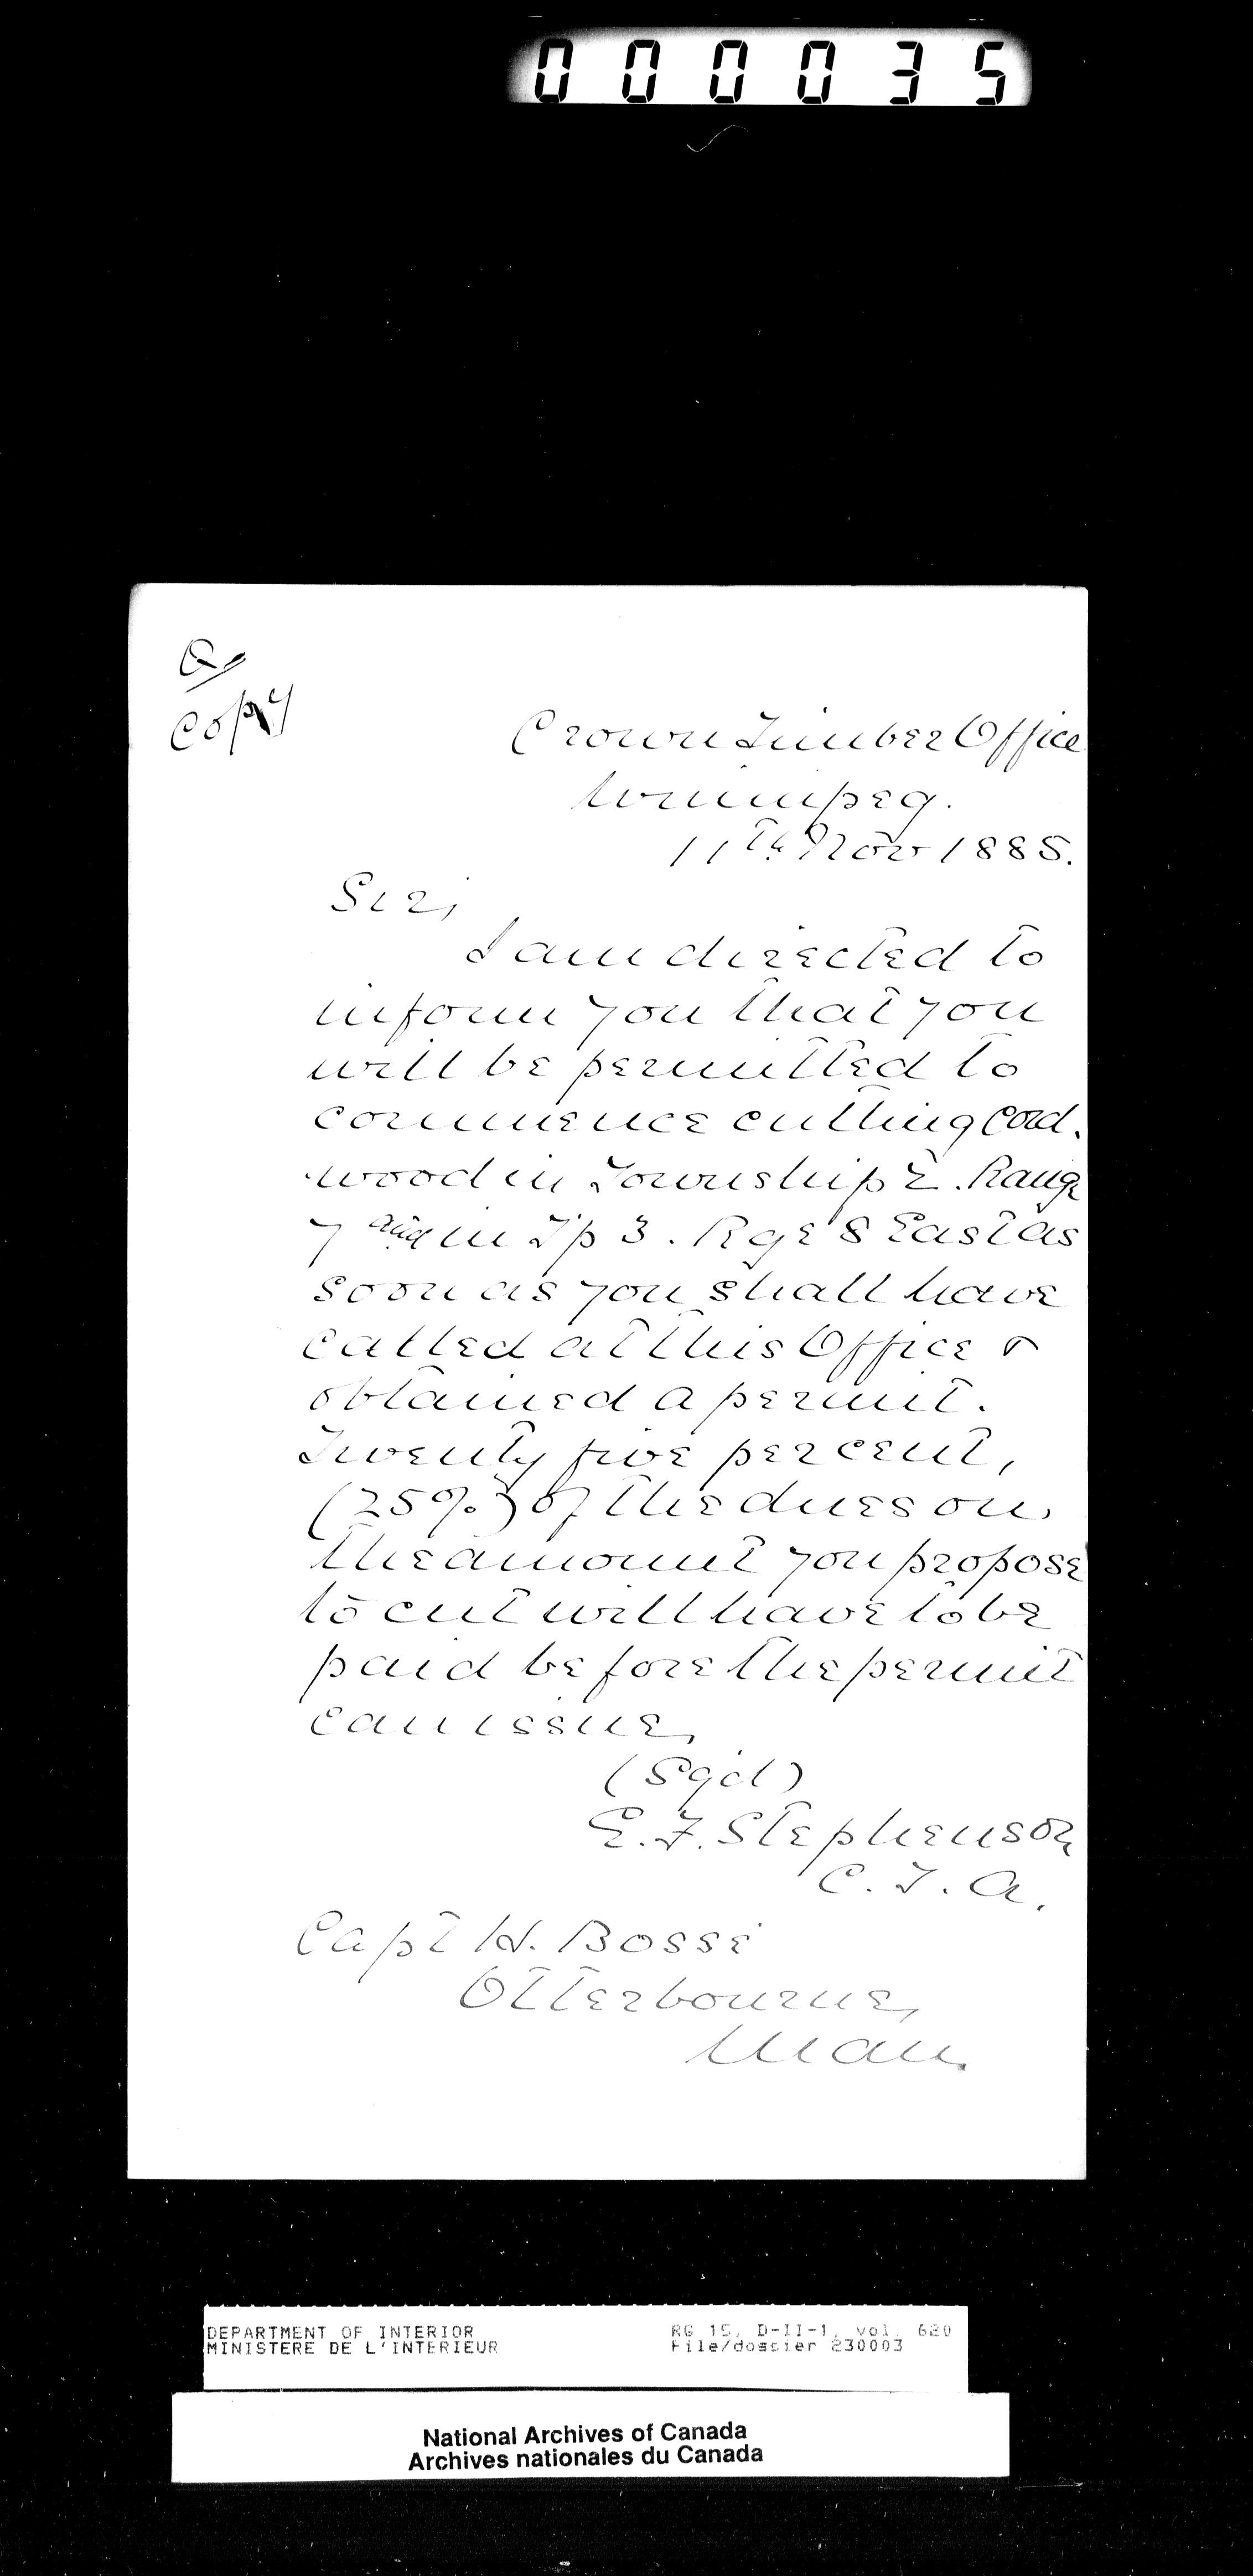 000035
Copy
Crown Timber Office
Winnipeg.
11th Nov 1885.
Sir,
I am directed to
inform you that you
will be permitted to
commence cutting Cord.
wood in Township 2. Range
7 and in Tp 3. Rge 8 East as
soon as you shall have
called at this Office &
obtained a permit.
Twenty five per cent,
(25%) of the dues on
the amount you propose
to cut will have to be
paid before the permit
can issue,
(Sgd)
E. F. Stephenson
C. T. A.
Capt H. Bossé
Otterbourne,
Man.
DEPARTMENT OF INTERIOR
MINISTERE DE L'INTERIEUR
RG 15, D-II-1, vol. 620
File/dossier 230003
National Archives of Canada
Archives nationales du Canada